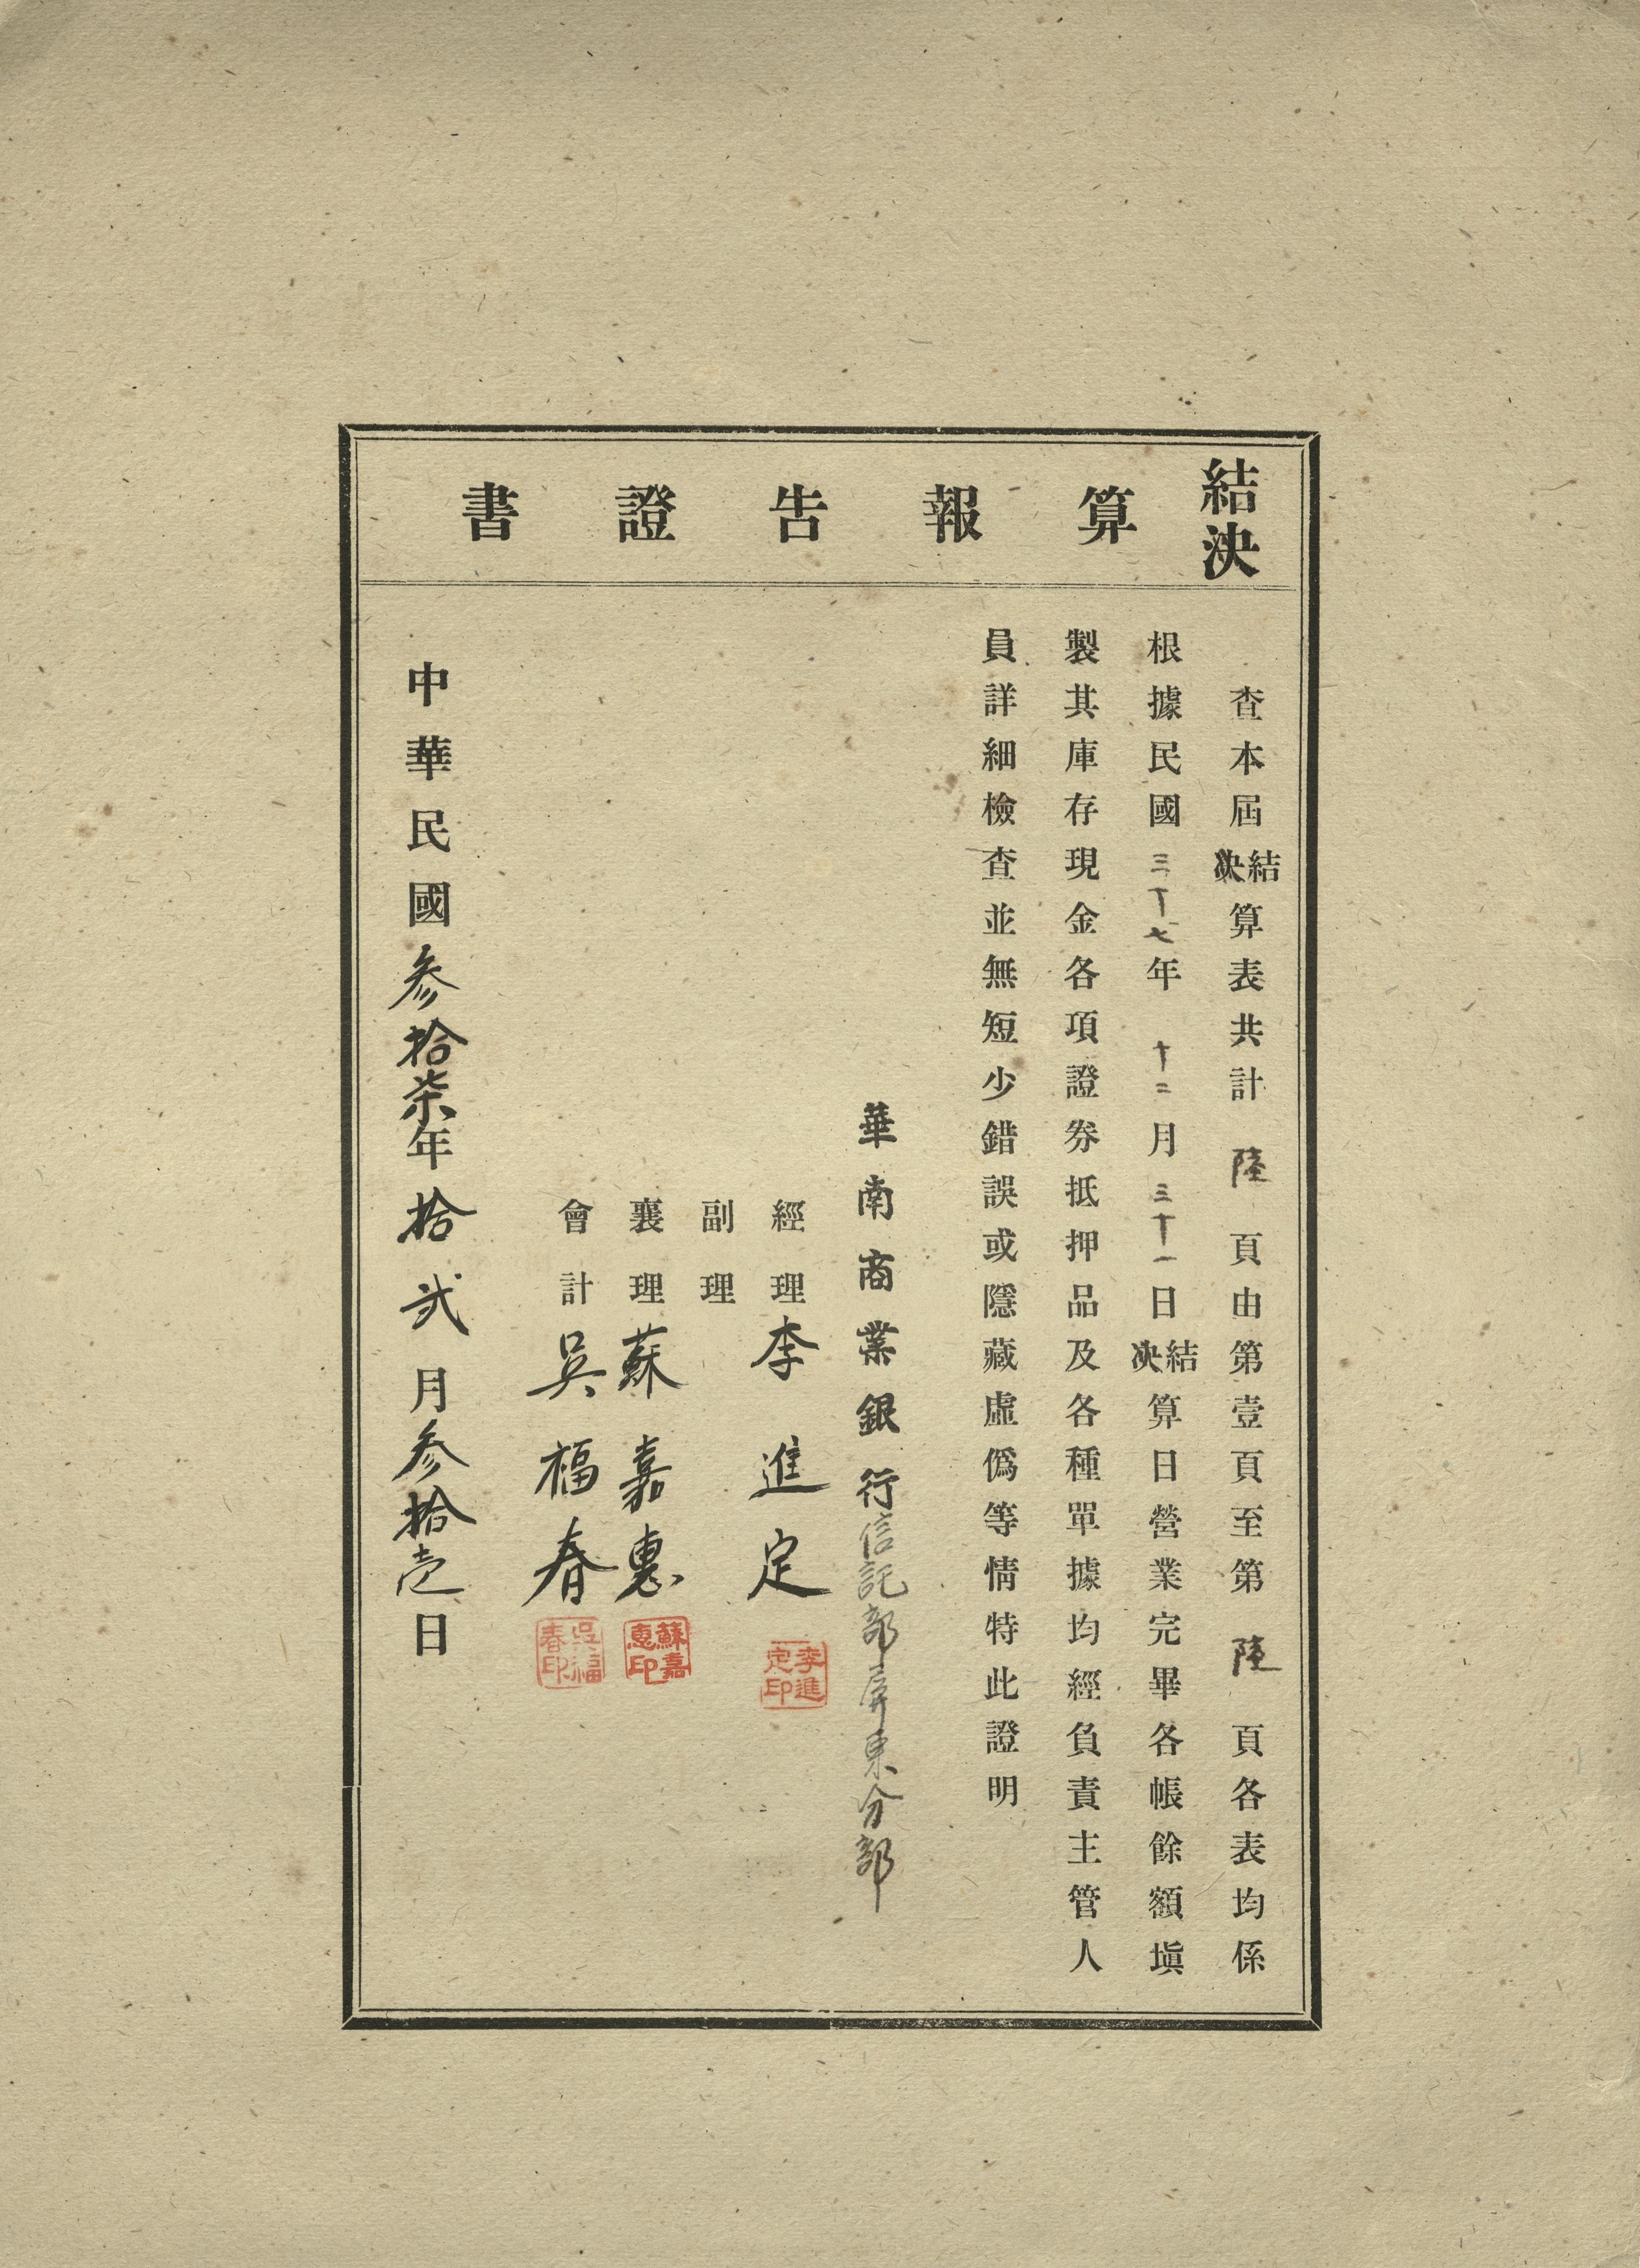 結決算報告證書
查本屆結決算表共計陸頁由第壹頁至第陸頁各表均係
根據民國三十七年十二月三十一日結決算日營業完畢各帳餘額塡
製其庫存現金各項證券抵押品及各種單據均經負責主管人
員詳細檢查並無短少錯誤或隱藏虛僞等情特此證明
華南商業銀行信託部屏東分部
經理李進定
李進定印
副理
襄理蘇嘉惠
蘇嘉惠印
會計吳福春
吳福春印
中華民國参拾柒年拾弍月参拾壱日